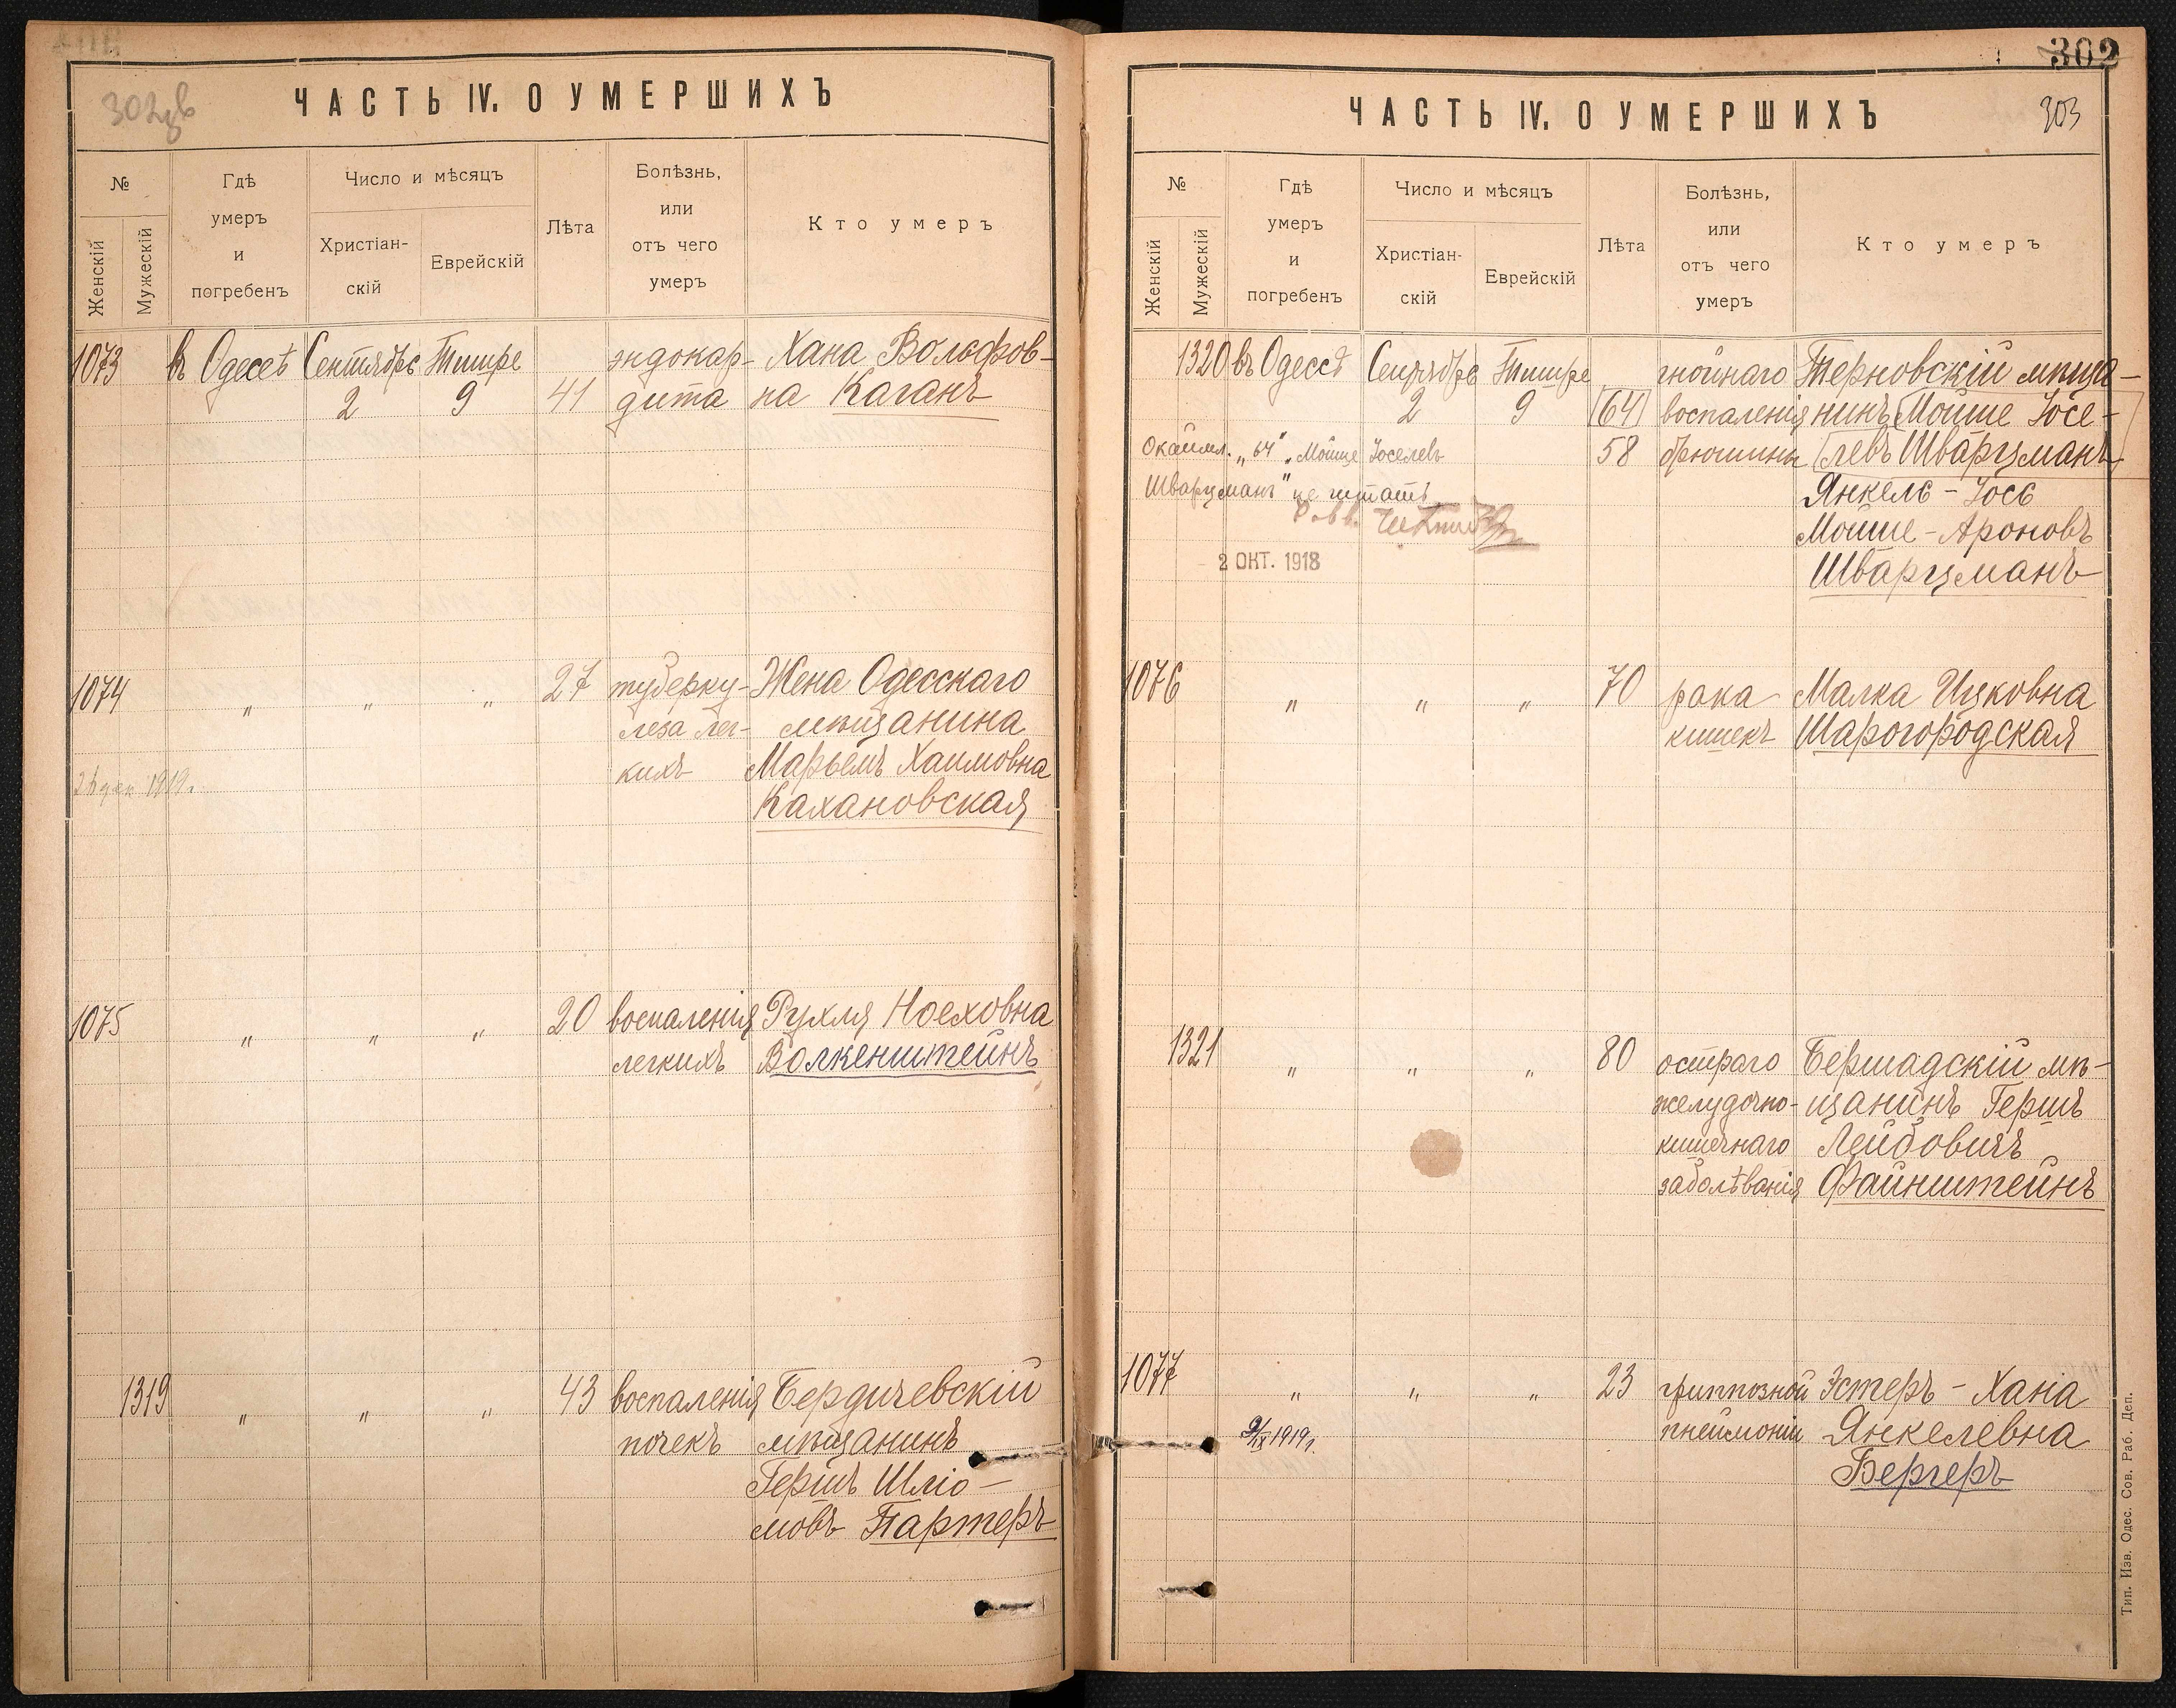 ЧАСТЬ IV. О УМЕРШИХЪ
№
Женскій
Мужескій
Гдѣ
умеръ
и
погребенъ
Число и мѣсяцъ
Христіан-
скій
Еврейскій
Лѣта
Болѣзнь,
или
отъ чего
умеръ
Кто умеръ
1073 въ Одессѣ Сентябрь Тишре эндокар- Хана Вольфов-
2 9 41 дита на Каганъ
1074 " " " 27 туберку- Жена Одесскаго
леза лег- мѣщанина
кихъ Марьемъ Хаимовна
1919г.
Кахановская
1075 " " " 20 воспаленія Рухля Ноеховна
легкихъ Волкенштейнъ
1319 " " " 43 воспаленія Бердичевскій
почекъ мѣщанинъ
Гершъ Шліо-
мовъ Партеръ
302
ЧАСТЬ IV. О УМЕРШИХЪ 303
№
Женскій
Мужескій
Гдѣ
умеръ
и
погребенъ
Число и мѣсяцъ
Христіан-
скій
Еврейскій
Лѣта
Болѣзнь,
или
отъ чего
умеръ
Кто умеръ
1320 въ Одессѣ Сентябрь Тишре гнойнаго Терновскій мѣща-
2 9 (64) воспаленія нинъ Мойше Іосе-
Окаймл. „64" „Мойше Іоселевъ 58 брюшины левъ Шварцманъ
Шварцманъ" не читать Янкель-Іось
Мойше-Ароновъ
2 ОКТ. 1918
Шварцманъ
1076 " " " 70 рака Малка Ицковна
кишекъ Шарогородская
1321 " " " 80 остраго Бершадскій мѣ-
желудочно- щанинъ Гершъ
кишечнаго Лейбовичъ
заболѣванія Файнштейнъ
1077 " " " 23 гриппозной Эстеръ-Хана
9/IX 1919г. пнеймоніи Янкелевна
Бергеръ
Тип. Изв. Одес. Сов. Раб. Деп.